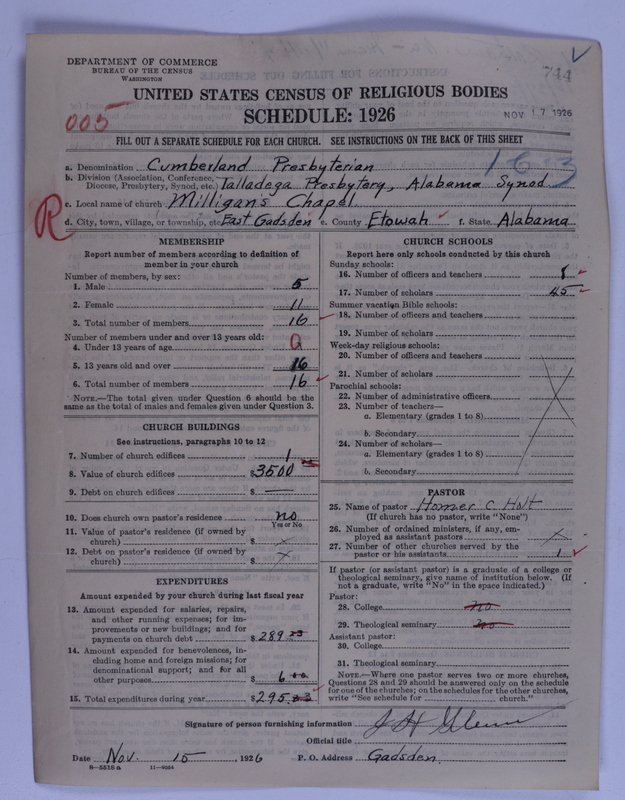 DEPARTMENT OF COMMERCE
BUREAU OF THE CENSUS
WASHINGTON
744
UNITED STATES CENSUS OF RELIGIOUS BODIES
SCHEDULE: 1926
NOV 17 1926
005
FILL OUT A SEPARATE SCHEDULE FOR EACH CHURCH. SEE INSTRUCTIONS ON THE BACK OF THIS SHEET
a. Denomination Cumberland Presbyterian
b. Division (Association, Conference,
Diocese, Presbytery, Synod, etc.) Talladega Presbytery, Alabama Synod
c. Local name of church Milligan's Chapel
R
d. City, town, village, or township, etc. East Gadsden e. County Etowah f. State Alabama
MEMBERSHIP
Report number of members according to definition of
member in your church
Number of members, by sex:
1. Male 5
2. Female 11
3. Total number of members 16
Number of members under and over 13 years old:
4. Under 13 years of age 0
5. 13 years old and over 16
6. Total number of members 16
NOTE.—The total given under Question 6 should be
the same as the total of males and females given under Question 3.
CHURCH BUILDINGS
See instructions, paragraphs 10 to 12
7. Number of church edifices 1
8. Value of church edifices $3500
9. Debt on church edifices $ —
10. Does church own pastor's residence no
Yes or No
11. Value of pastor's residence (if owned by
church) $ x
12. Debt on pastor's residence (if owned by
church) $ x
EXPENDITURES
Amount expended by your church during last fiscal year
13. Amount expended for salaries, repairs,
and other running expenses; for im-
provements or new buildings; and for
payments on church debt $289 23
14. Amount expended for benevolences, in-
cluding home and foreign missions; for
denominational support; and for all
other purposes $ 6 00
15. Total expenditures during year $295.23
CHURCH SCHOOLS
Report here only schools conducted by this church
Sunday schools:
16. Number of officers and teachers 8
17. Number of scholars 45
Summer vacation Bible schools:
18. Number of officers and teachers
19. Number of scholars
Week-day religious schools:
20. Number of officers and teachers
21. Number of scholars
Parochial schools:
22. Number of administrative officers
23. Number of teachers—
a. Elementary (grades 1 to 8)
b. Secondary
24. Number of scholars—
a. Elementary (grades 1 to 8)
b. Secondary
PASTOR
25. Name of pastor Homer C Holt
(If church has no pastor, write "None")
26. Number of ordained ministers, if any, em-
ployed as assistant pastors x
27. Number of other churches served by the
pastor or his assistants 1
If pastor (or assistant pastor) is a graduate of a college or
theological seminary, give name of institution below. (If
not a graduate, write "No" in the space indicated.)
Pastor:
28. College no
29. Theological seminary no
Assistant pastor:
30. College
31. Theological seminary
NOTE.—Where one pastor serves two or more churches,
Questions 28 and 29 should be answered only on the schedule
for one of the churches; on the schedules for the other churches,
write "See schedule for church."
Signature of person furnishing information J H Glenn
Official title
Date Nov. 15, 1926 P. O. Address Gadsden
8—5518 a 11—9064